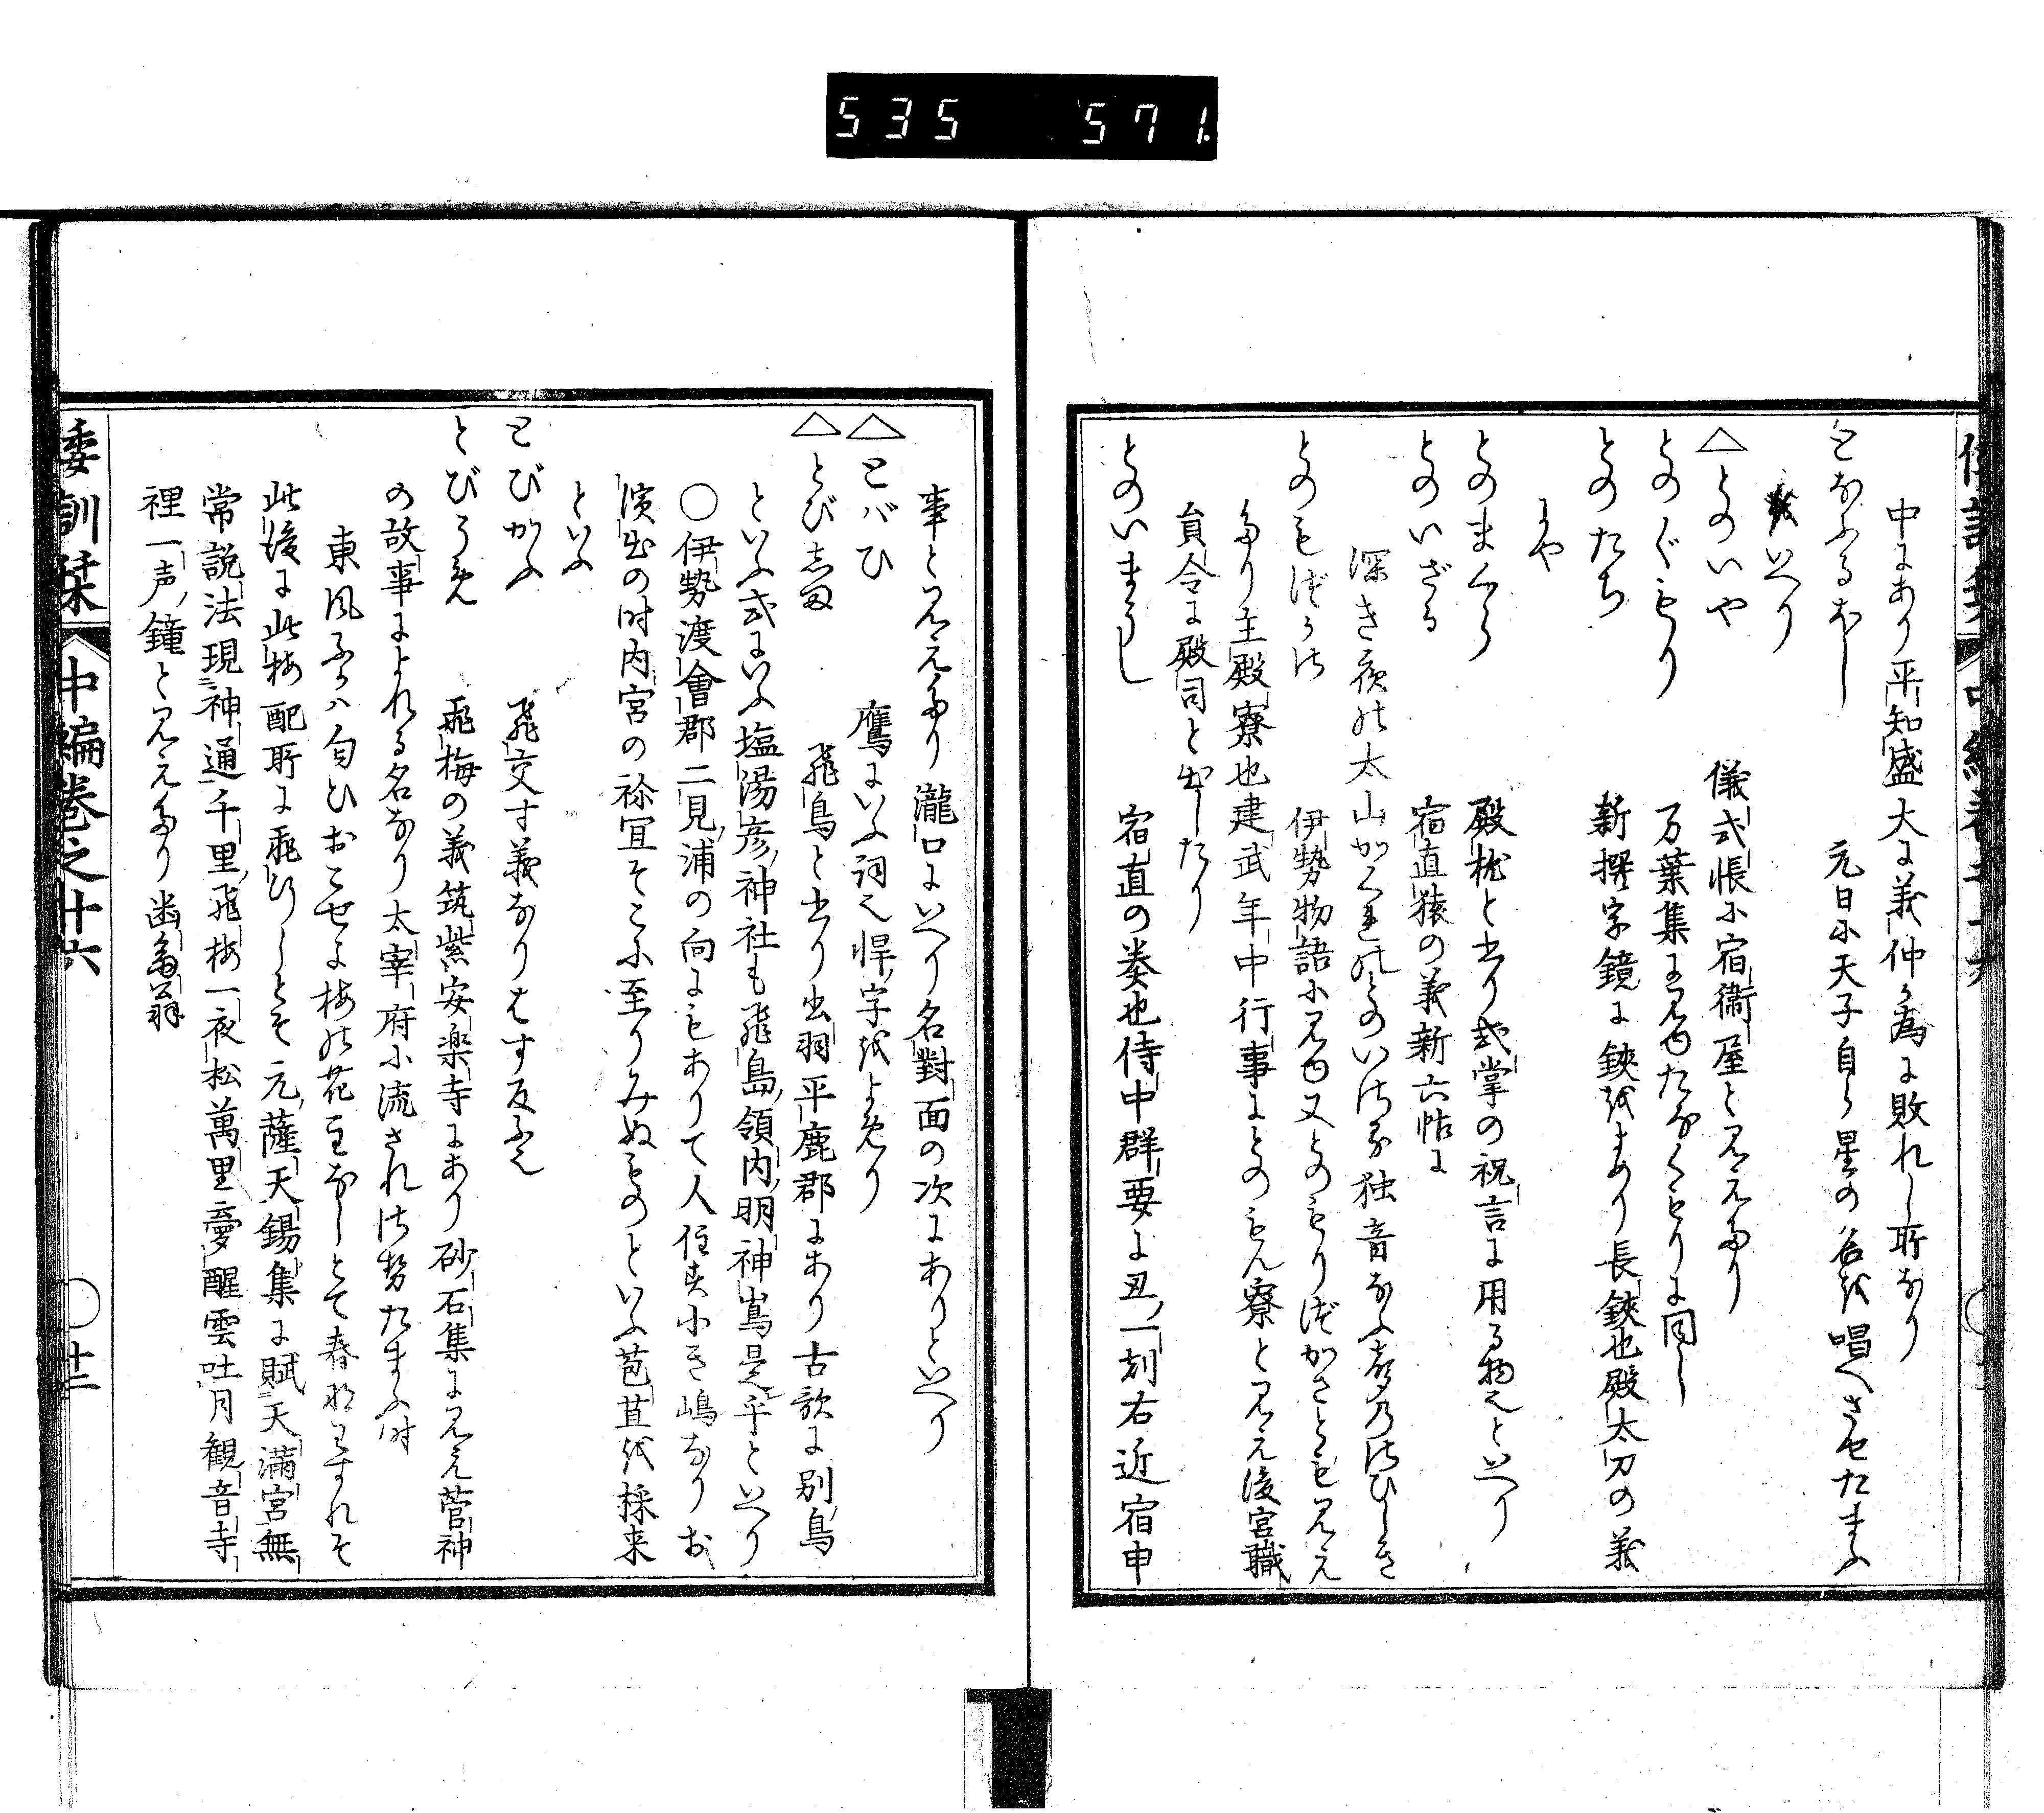 535 571
中にあり平知盛大に義仲か為に敗れし所なり
となふるほし 元日に天子自ら星の名を唱へさせたまふ
をいへり
△とのいや 儀式帳に宿衛屋と見えたり
とのぐもり 万葉集に見ゆたなくもりに同し
とのたち 新撰字鏡に鋏をよめり長鋏也殿太刀の義
にや
とのまくら 殿枕と書り或掌の祝言に用る物也といへり
とのいざる 宿直猿の義新六帖に
深き夜の太山かくれのとのいさる独音なふ声のさひしき
とのもづかさ 伊勢物語に見ゆ又とのもりづかさとも見え
たり主殿寮也建武年中行事にとのもん寮と見え後宮職
員令に殿司と出したり
とのいまうし 宿直の奏也侍中群要に丑一刻右近宿申
事と見えたり瀧口にいへり名對面の次にありといへり
△とバひ 鷹にいふ詞也悍字をよめり
△とびしま 飛鳥と書り出羽平鹿郡にあり古歌に別鳥
といふ或にいふ塩湯彦神社も飛島領内明神嶌是乎といへり
○伊勢渡會郡二見浦の向にもありて人住ま小き嶋なりお
濱出の时内宮の祢冝そこに至りみぬものといふ苞苴を採来
といふ
とびかふ 飛交す義なりはす反ふ也
とびうめ 飛梅の義筑紫安楽寺にあり砂石集に見え菅神
の故事によれる名なり太宰府に流されさせたまふ时
東風ふかハ匂ひおこせよ梅の花主なしとて春なわすれそ
此後に此梅配所に飛行しとそ元薩天錫集に賦天満宮無
常説法現神通千里飛梅一夜松萬里夢醒雲吐月観音寺
裡一声鐘と見えたり
倭訓栞 中編巻之十六 ○ 廿二